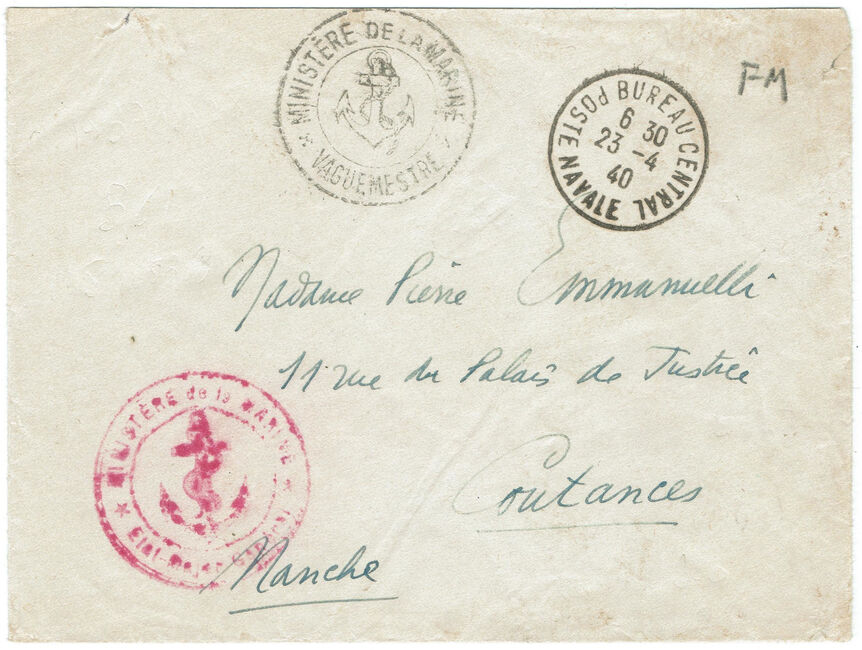 MINISTÈRE DE LA MARINE
* VAGUEMESTRE *
BUREAU CENTRAL
POSTE NAVALE
6 30
23 -4
40
FM
Madame Pierre Emmanuelli
11 rue du Palais de Justice
Coutances
Manche
MINISTÈRE de la MARINE
* Etat-Major *